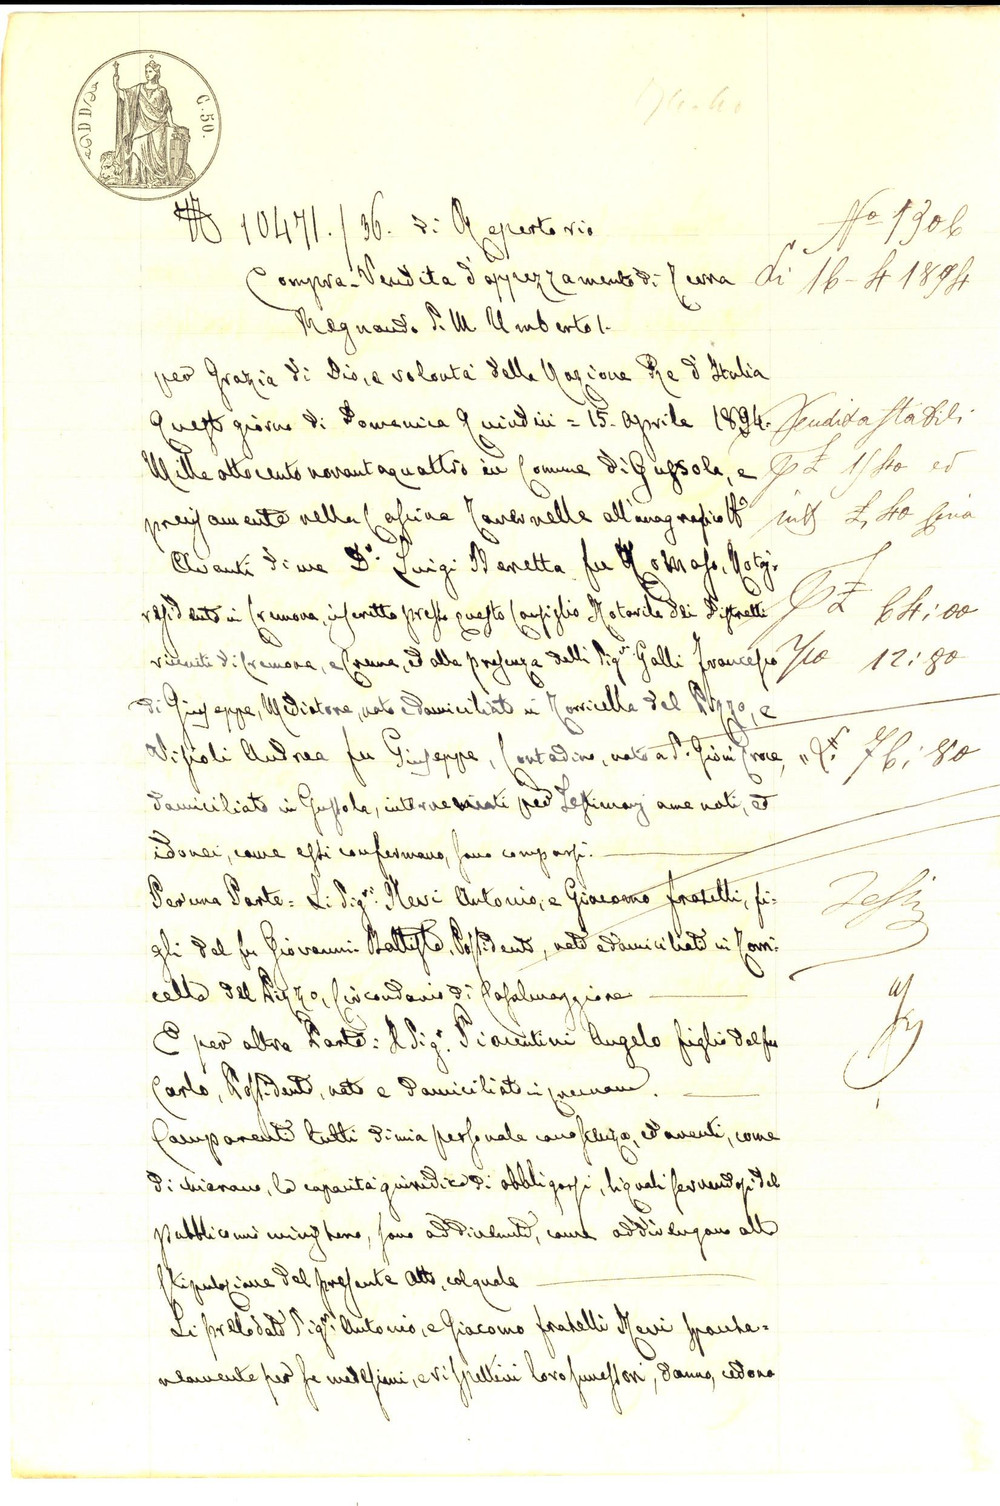 C. 50.
N° 10471./36. di Repertorio
Compra-Vendita d'appezzamento di Terra
Regnando S. M. Umberto I.
per Grazia di Dio, e volontà della Nazione Re d'Italia
Questo giorno di Domenica Quindici = 15. Aprile 1894.
Mille ottocento novantaquattro in Comune di Gussola, e
precisamente nella Cascina Tavernelle all'anagrafico N°
Avanti di me D.r Luigi Beretta fu Tomaso, Notajo
residente in Cremona, inscritto presso questo Consiglio Notarile dei Distretti
riuniti di Cremona, e Crema, ed alla presenza delli Sig.ri Galli Francesco
di Giuseppe, Mediatore, nato e domiciliato in Torricella del Pizzo, e
Visioli Andrea fu Giuseppe, Contadino, nato a S. Gio. in Croce,
domiciliato in Gussola, intervenuti per Testimonj a me noti, ed
idonei, come essi confermano, sono comparsi.
Per una Parte = Li Sig.ri Nevi Antonio, e Giacomo fratelli, fi-
gli del fu Giovanni Battista, Possidenti, nati e domiciliati in Torri-
cella del Pizzo, Circondario di Casalmaggiore
E per altra Parte: Il Sig.r Fiorentini Angelo figlio del fu
Carlo, Possidente, nato e domiciliato in
Comparenti tutti di mia personale conoscenza, ed aventi, come
dichiarano, la capacità giuridica di obbligarsi, li quali servendosi del
pubblico mio ministero, sono addivenuti, come addivengono alla
stipulazione del presente Atto, col quale
Li prelodati Sig.ri Antonio, e Giacomo fratelli Nevi sponta-
neamente per se medesimi, e rispettivi loro successori, danno, cedono
N° 1306
Li 16-4 1894
Vendita stabili
1540 ed
int 40
64:00
1/20 12:80
£. 76:80
Testi